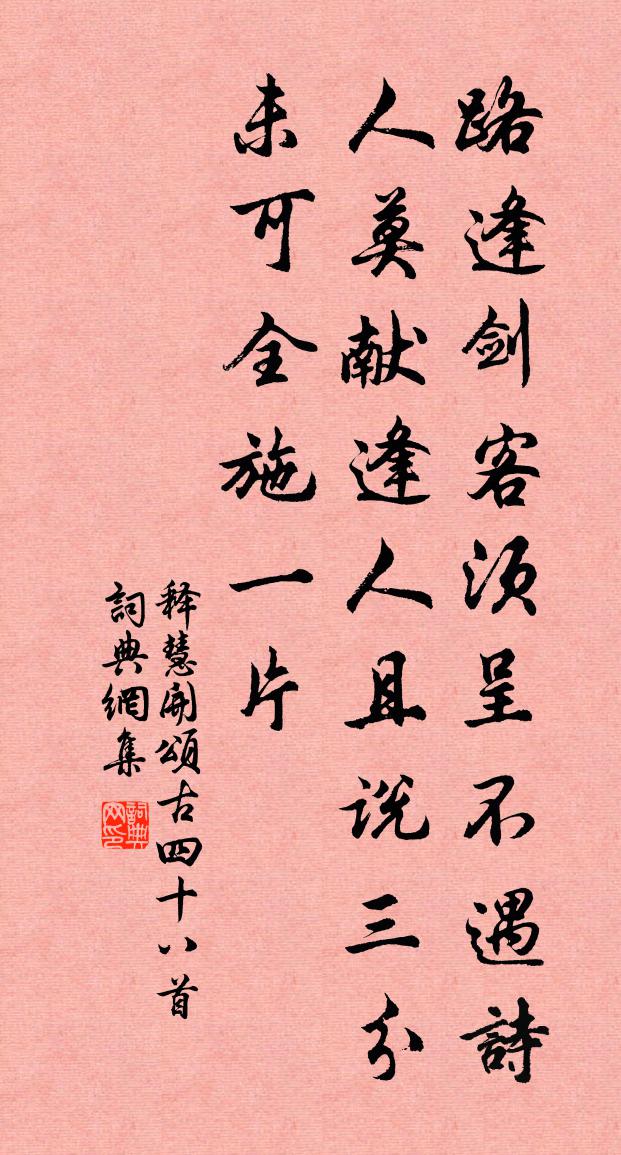 路逢剑客须呈不遇詩
人莫献逢人且说三分
未可全施一片
释慧開頌古四十八首
詞典網集
詞典网印